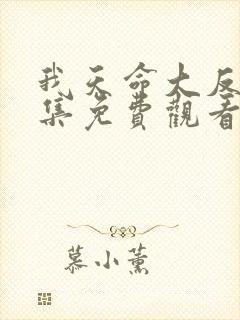 我天命大反
集免費觀看
慕小薰